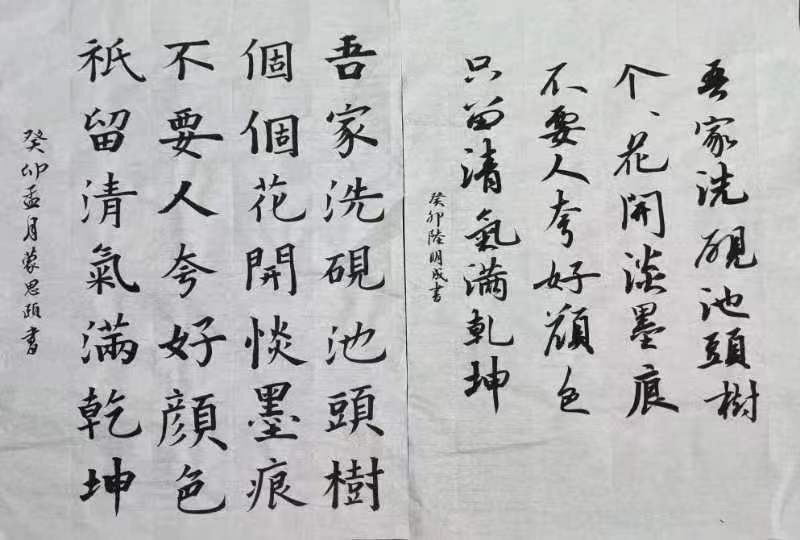 吾家洗硯池頭樹
个、花開淡墨痕
不要人夸好顏色
只留清氣滿乾坤
癸卯陸明成書
吾家洗硯池頭樹
個個花開惔墨痕
不要人夸好顏色
祇留清氣滿乾坤
癸卯孟月蒙思頤書